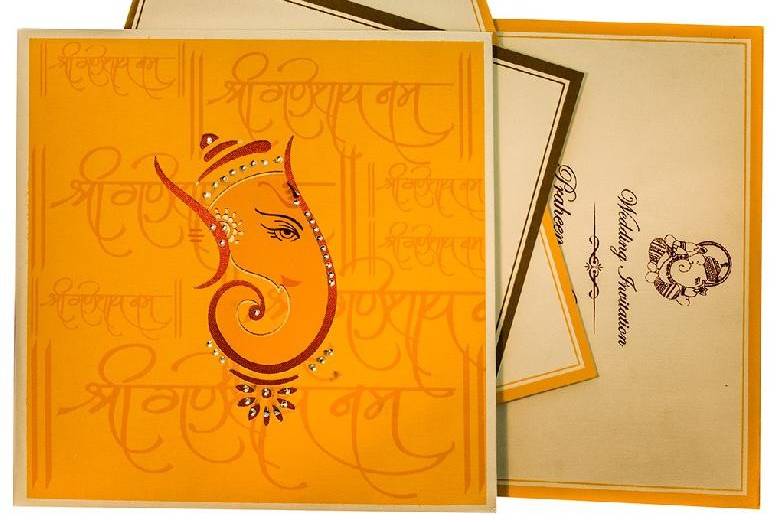 श्री गणेशाय नम
श्री गणेशाय नम
श्री गणेशाय नम
श्री गणेशाय नम
श्री गणेशाय नम
श्री गणेशाय नम
श्री गणेशाय नम
श्री गणेशाय नम
Wedding Invitation
Praheen